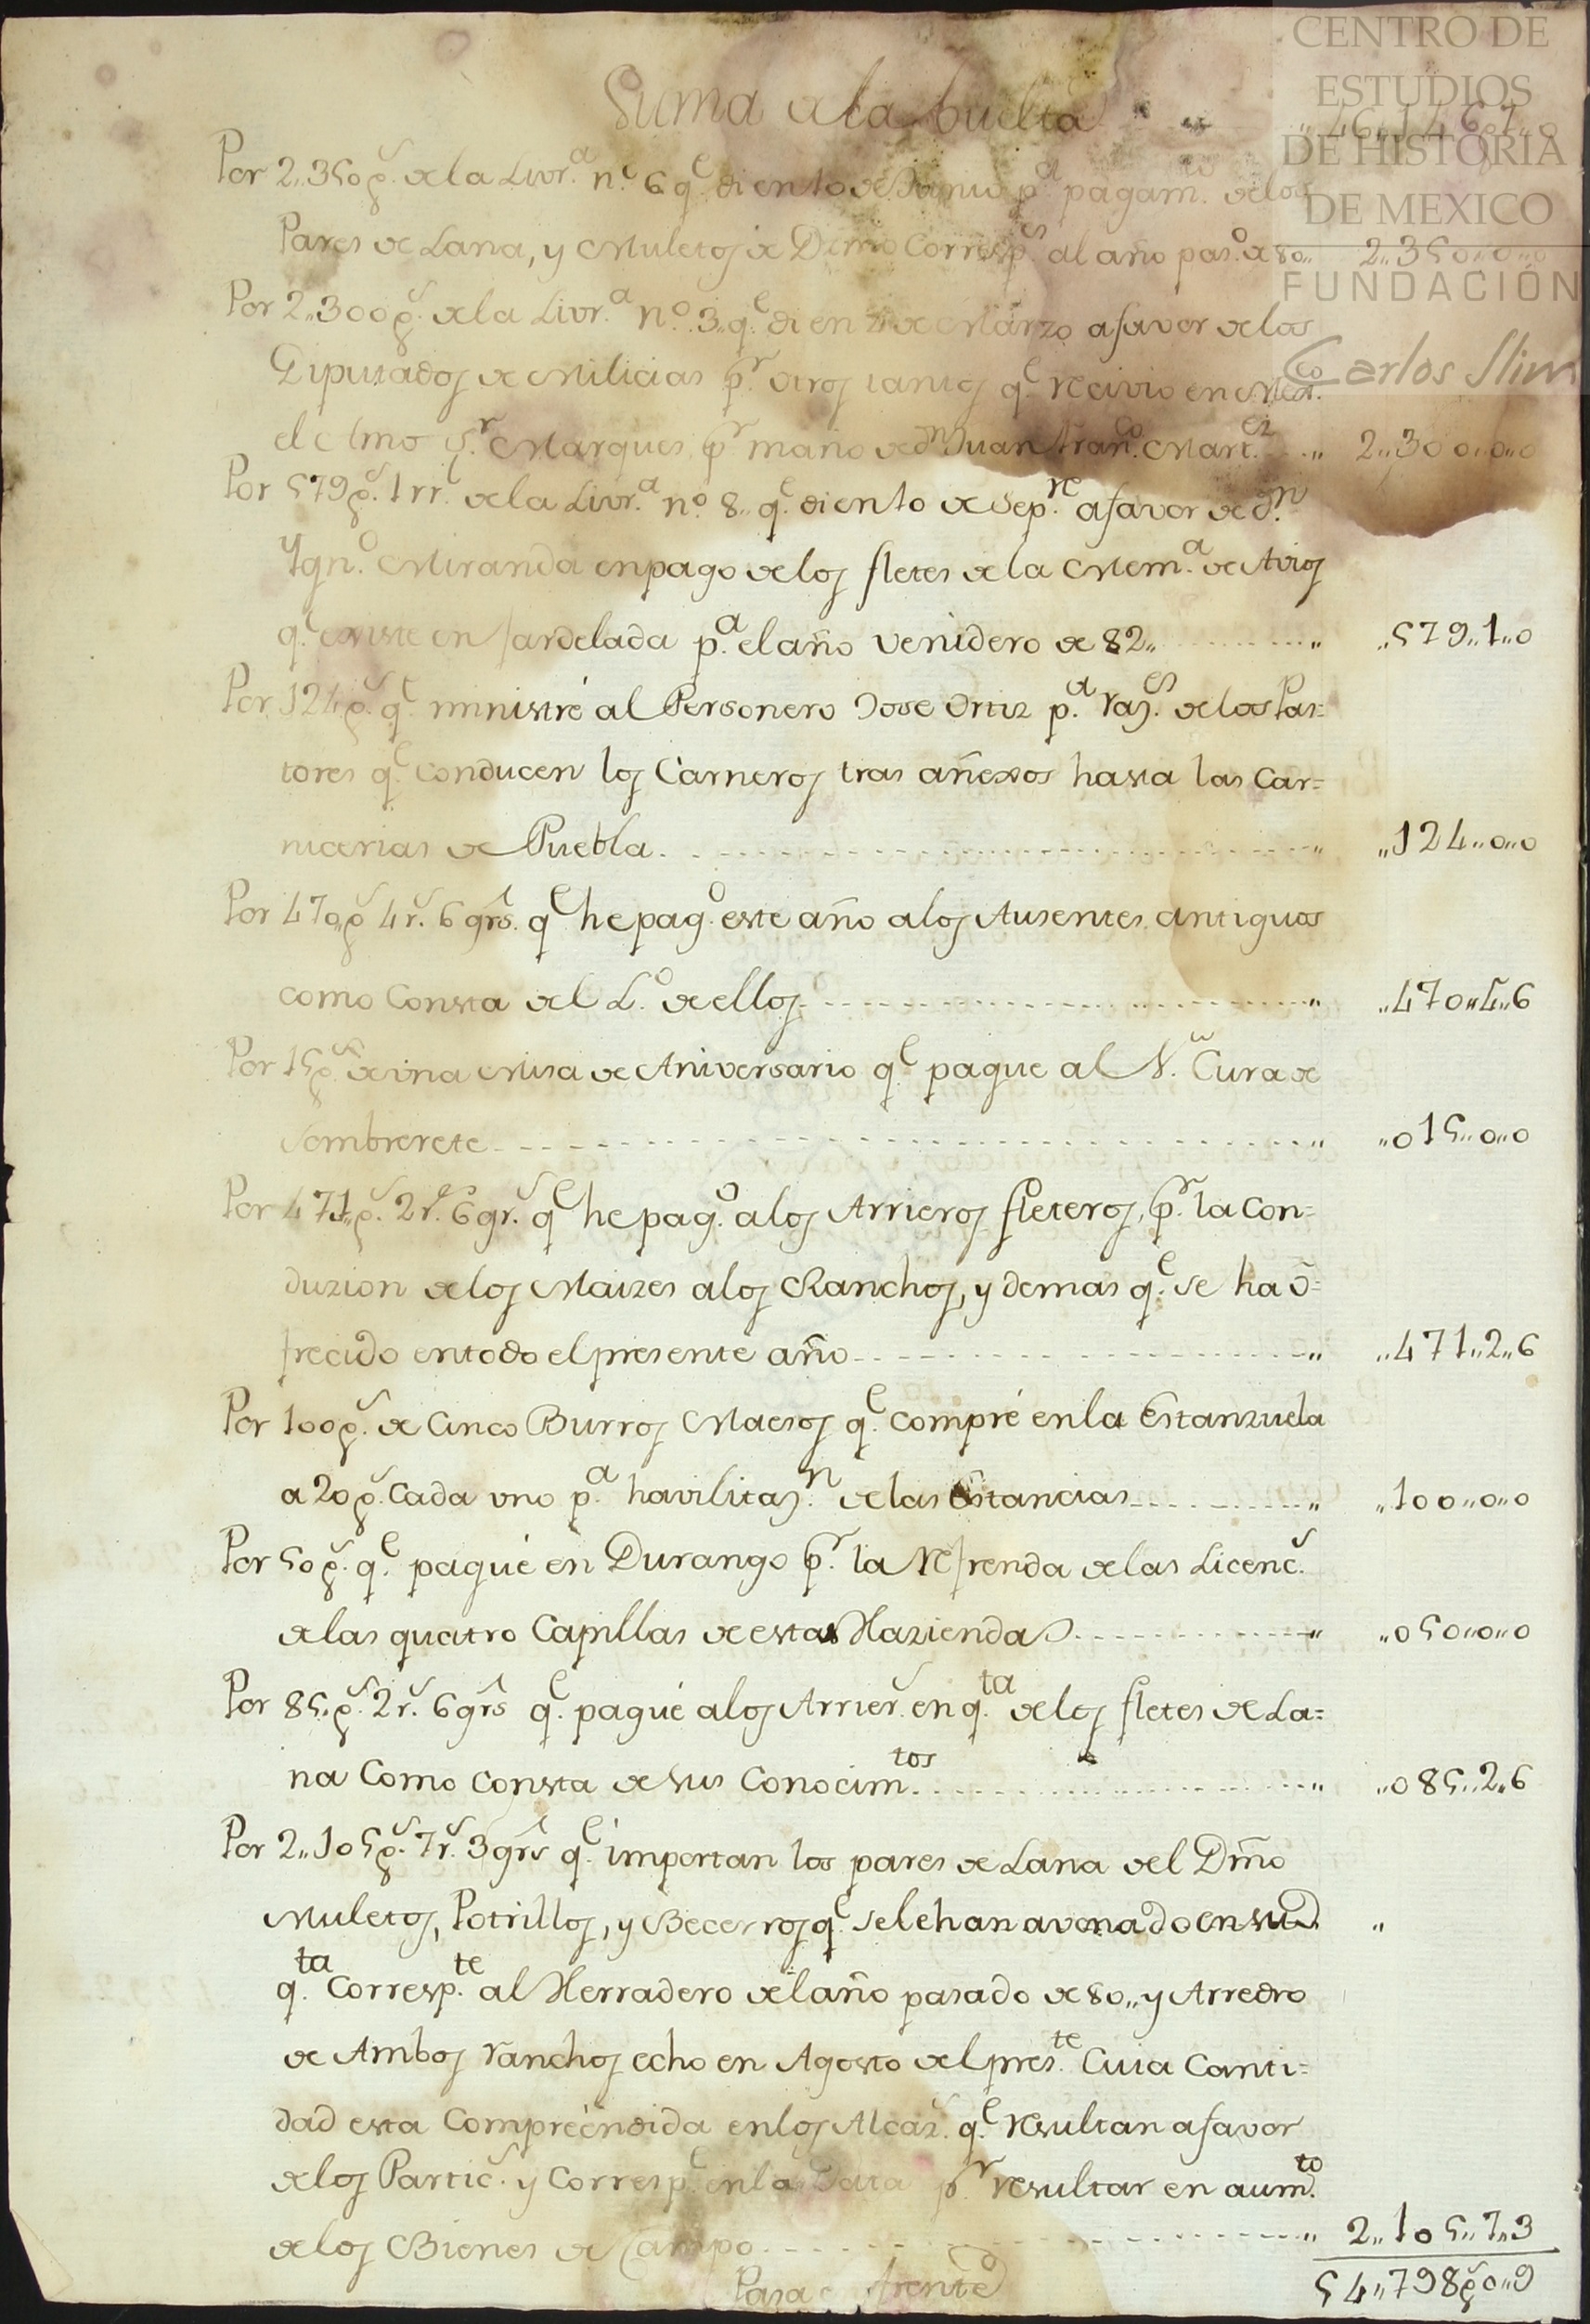 CENTRO DE
ESTUDIOS
DE HISTORIA
DE MEXICO
FUNDACIÓN
Carlos Slim
Suma de la buelta
Por 2,,350 p.s de la Livr.a n.o 6 q.e di en 1o de Junio p.a pagam.to de los
Pares de Lana, y Muletos de Dmo Corresp.s al año pas.o de 80,, 2,,350,,0,,0
Por 2,,300 p.s de la Livr.a n.o 3,, q.e di en de Marzo a favor de los
Diputados de Milicias p.r otros tantos q.e recivio en Mex.co
el Ylmo S.r Marques, p.r mano de d.n Juan Fran.co Mart.ez ,, 2,,300,,0,,0
Por 579 p.s 1 rr.l de la Livr.a n.o 8,, q.e di en 1o de Sep.re a favor de d.n
Ygn.o Miranda en pago de los fletes de la Mem.a de Avios
q.e existe enfardelada p.a el año venidero de 82,, ,, ,,579,,1,,0
Por 124 p.s q.e ministré al Personero Jose Ortiz p.a raz.es de los Pas=
tores q.e conducen los Carneros tras añexos hasta las Car=
nicerias de Puebla ,, ,,124,,0,,0
Por 470 p.s 4 r.s 6 grs. q.e he pag.o este año a los Ausentes antiguos
como Consta del L.o de ellos ,, ,,470,,4,,6
Por 15 p.s de vna Misa de Aniversario q.e pague al Cura de
Sombrerete ,, ,,015,,0,,0
Por 471,, p.s 2 r.s 6 gr.s q.e he pag.o a los Arrieros fleteros, p.r la Con=
duzion de los Maizes a los Ranchos, y demas q.e se ha o=
frecido en todo el presente año ,, ,,471,,2,,6
Por 100 p.s de Cinco Burros Maesos q.e compré en la Estanzuela
a 20 p.s Cada vno p.a havilitaz.n de las Estancias ,, ,,100,,0,,0
Por 50 p.s q.e pagué en Durango p.r la Refrenda de las Licenc.s
de las quatro Capillas de estas Haziendas ,, ,,050,,0,,0
Por 85,, p.s 2 r.s 6 grs q.e pagué a los Arrier.s en q.ta de los fletes de La=
na Como Consta de sus Conocim.tos ,, ,,085,,2,,6
Por 2,,105 p.s 7 r.s 3 grs q.e importan los pares de Lana del Dmo
Muletos, Potrillos, y Becerros q.e se le han avonado en su ,,
q.ta Corresp.te al Herradero del año pasado de 80,, y Arredro
de Ambos ranchos echo en Agosto del pres.te Cuia Canti=
dad esta Compreéndida en los Alcaz.s q.e resultan a favor
de los Partic.s y Corresp.e en la Data p.r resultar en aum.to
de los Bienes de Campo ,, 2,,105,,7,,3
Pasa frente 54,,798 p.s 0,,9